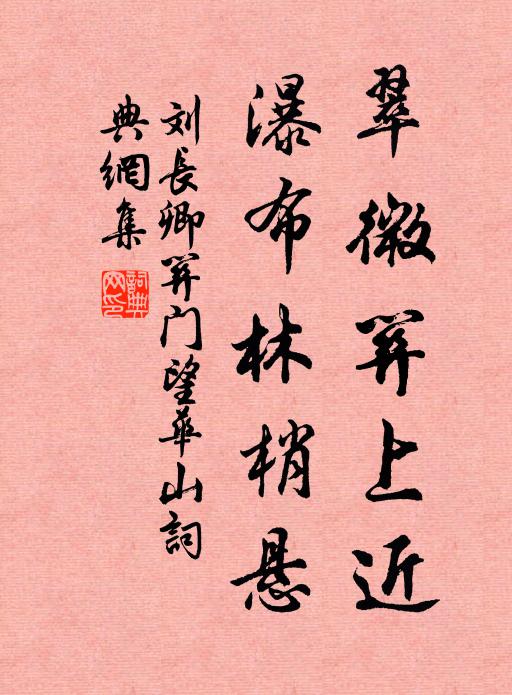 翠微關上近
瀑布林梢悬
刘長卿關门望華山詞
典網集
詞典
网印